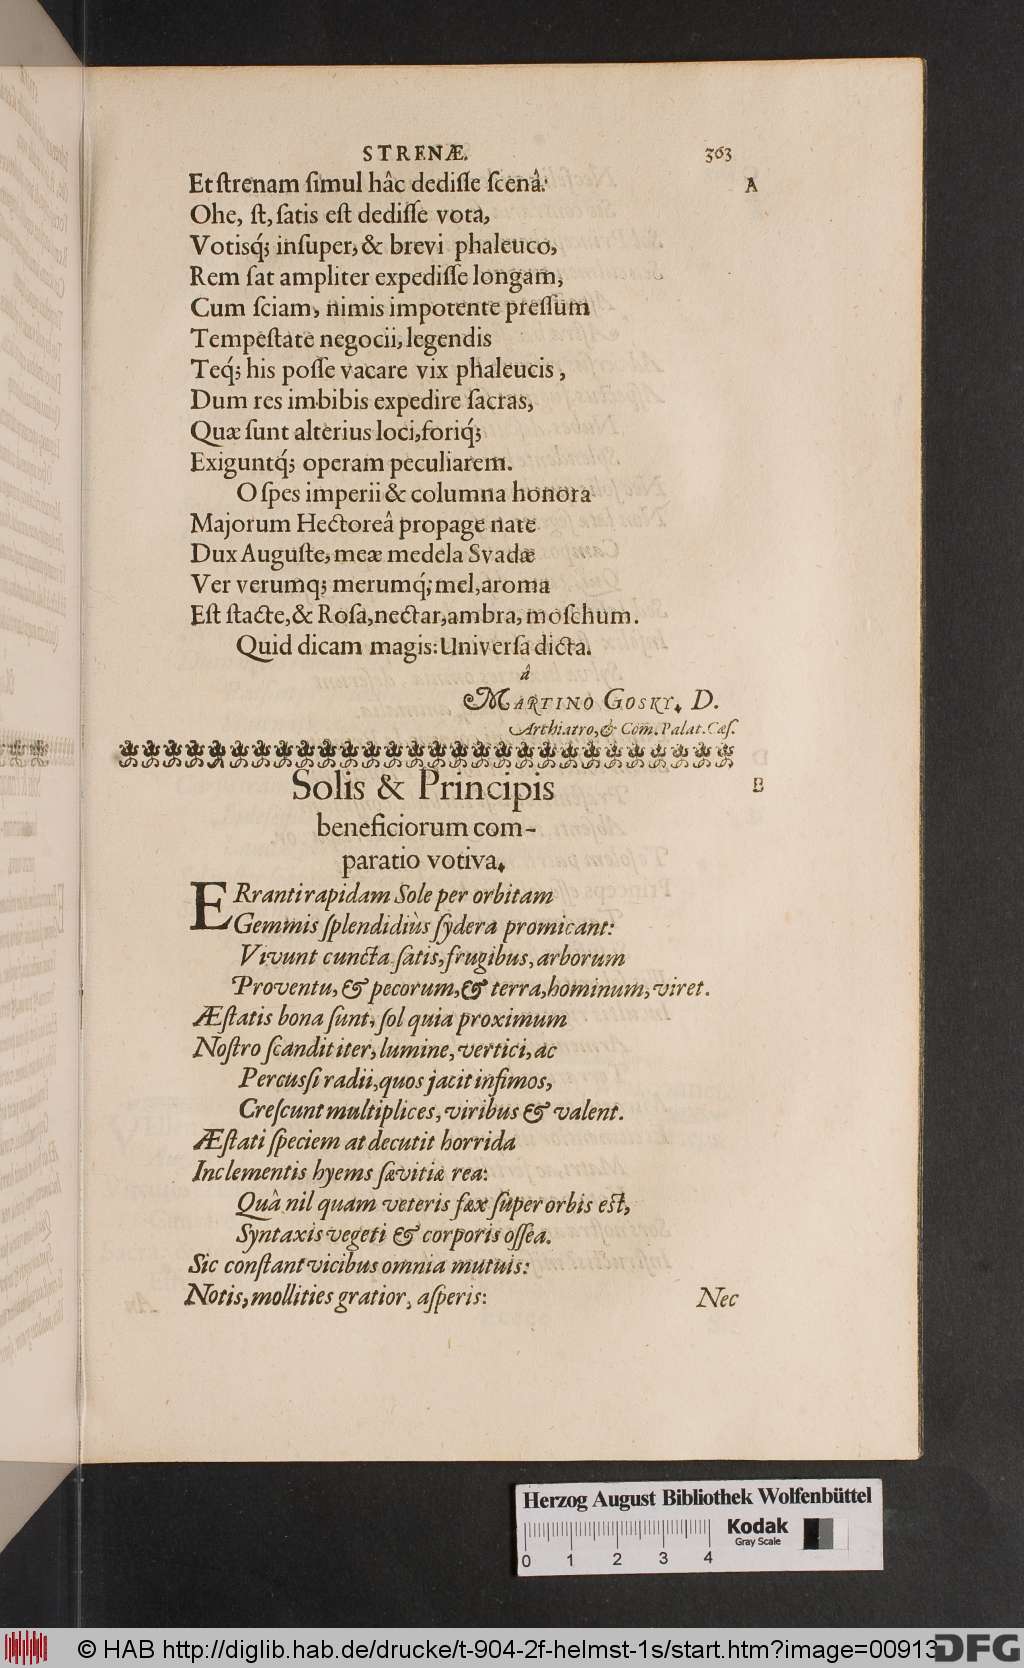 STRENÆ. 363
Et ſtrenam ſimul hâc dediſſe ſcenâ. A
Ohe, ſt, ſatis eſt dediſſe vota,
Votisq́; inſuper, & brevi phaleuco,
Rem ſat ampliter expediſſe longam,
Cum ſciam, nimis impotente preſſum
Tempeſtate negocii, legendis
Teq́; his poſſe vacare vix phaleucis,
Dum res imbibis expedire ſacras,
Quæ ſunt alterius loci, foriq́;
Exiguntq́; operam peculiarem.
O ſpes imperii & columna honora
Majorum Hectoreâ propage nate
Dux Auguſte, meæ medela Svadæ
Ver verumq; merumq́; mel, aroma
Eſt ſtacte, & Roſa, nectar, ambra, moſchum.
Quid dicam magis: Univerſa dicta.
â
MARTINO GOSKY. D.
Arthiatro, & Com. Palat. Cæſ.
Solis & Principis B
beneficiorum com-
paratio votiva.
ERranti rapidam Sole per orbitam
Gemmis ſplendidiùs ſydera promicant:
Vivunt cuncta ſatis, frugibus, arborum
Proventu, & pecorum, & terra, hominum, viret.
Æſtatis bona ſunt, ſol quia proximum
Noſtro ſcandit iter, lumine, vertici, ac
Percuſſi radii, quos jacit infimos,
Creſcunt multiplices, viribus & valent.
Æſtati ſpeciem at decutit horrida
Inclementis hyems ſævitiæ rea:
Quâ nil quam veteris fæx ſuper orbis eſt,
Syntaxis vegeti & corporis oſſea.
Sic conſtant vicibus omnia mutuis:
Notis, mollities gratior, aſperis: Nec
Herzog August Bibliothek Wolfenbüttel
Kodak
Gray Scale
0 1 2 3 4
© HAB http://diglib.hab.de/drucke/t-904-2f-helmst-1s/start.htm?image=00913
DFG